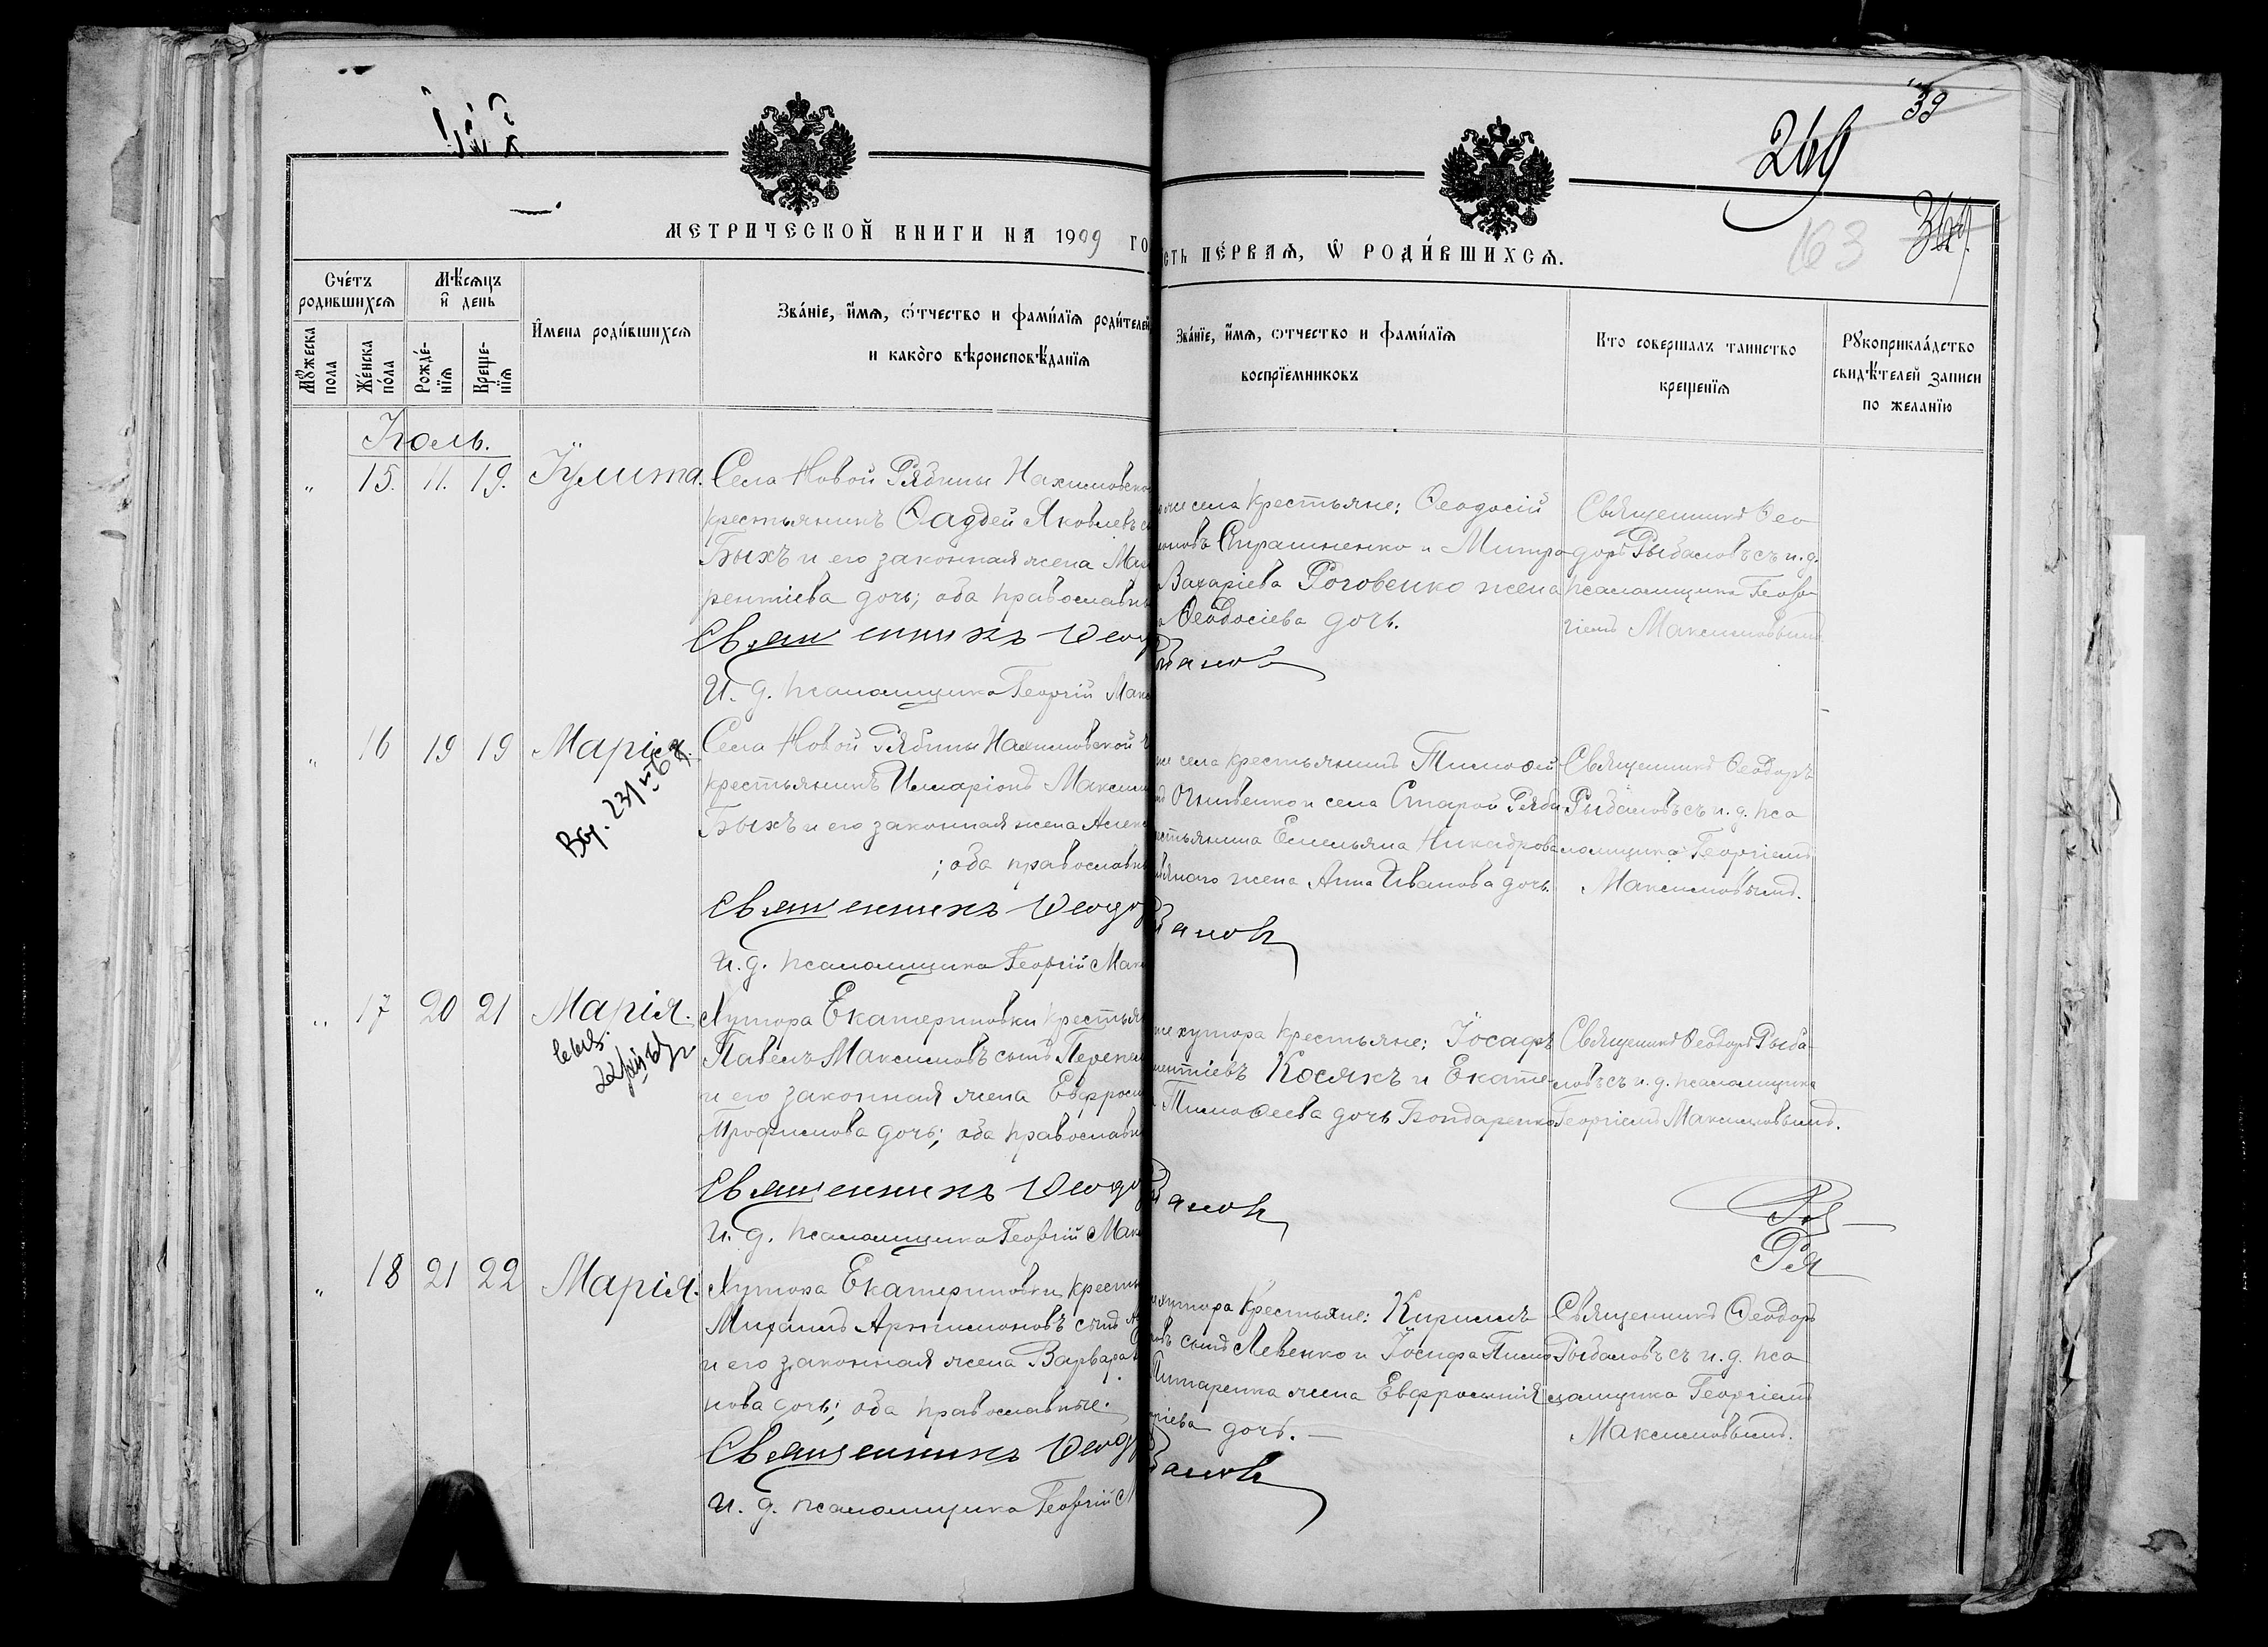 39
269
163
369.
МЕТРИЧЕСКОЙ КНИГИ НА 1909 ГО
СТЬ ПЕ́РВАЯ, Ѿ РОДИ́ВШИХСЯ.
Счétъ родившихся
Мѣ́сяцъ и҆ день
И҆мена роди́вшихся
Зва́нїе, и҆́мя, ѻ҆́тчество и фами́лїя роди́телей
и како́го вѣроисповѣ́данїя
Мꙋ́жеска пола
Же́нска по́ла
Рожде́-нїя
Креще-нїя
Зва́нїе, и҆́мя, ѻтчество и фами́лїя
воспрїемниковъ
Кто совершалъ таинство
крещенїя
Рꙋкоприкла́дство
свидѣ́телей записи
по желанїю
Іюль.
" 15. 11. 19. Іулита.
Села Новой Рябины Нахимовско
крестьянинъ Ѳаддей Яковлевъ с
Быхъ и его законная жена Ма
рентіева дочь; оба православн
Священникъ Ѳеод
И. д. псаломщика Георгій Мак
же села крестьяне: Ѳеодосій
Страшненко и Митро
Захаріева Роговенко жена
Ѳеодосіева дочь.
Священникъ Ѳео
доръ Рыбаловъ съ и. д.
псаломщика Геор
гіемъ Максимовымъ.
" 16 19 19 Марія.
Села Новой Рябины Нахимовской
крестьянинъ Илларіонъ Максим
Быхъ и его законная жена Алек
; оба православн
Священникъ Ѳеодо
И. д. псаломщика Георгій Мак
же села крестьянинъ Тимоѳей
Огнивенко и села Старой Ряби
стьянина Емельяна Никадрова
жена Анна Иванова дочь.
Священникъ Ѳеодоръ
Рыбаловъ съ и. д. пса
ломщика Георгіемъ
Максимовымъ.
" 17 20 21 Марія.
Хутора Екатериновки крестья
Павелъ Максимовъ сынъ Перепел
и его законная жена Евфроси
Трофимова дочь; оба православн
Священникъ Ѳеодо
И. д. псаломщика Георгій Мак
же хутора крестьяне: Іосафъ
ентіевъ Косякъ и Екате
Тимоѳеева дочь Бондаренко
Священникъ Ѳеодоръ Рыба
ловъ съ и. д. псаломщика
Георгіемъ Максимовымъ.
" 18 21 22 Марія.
Хутора Екатериновки крестья
Михаилъ Архиповъ сынъ
и его законная жена Варвара
нова дочь; оба православные.
Священникъ Ѳеодо
И. д. псаломщика Георгій М
хутора крестьяне: Кириллъ
сынъ Левенко и Іосифа Тимо
жена Евфросинія
ріева дочь.
Священникъ Ѳеодоръ
Рыбаловъ съ и. д. пса
ломщика Георгіемъ
Максимовымъ.